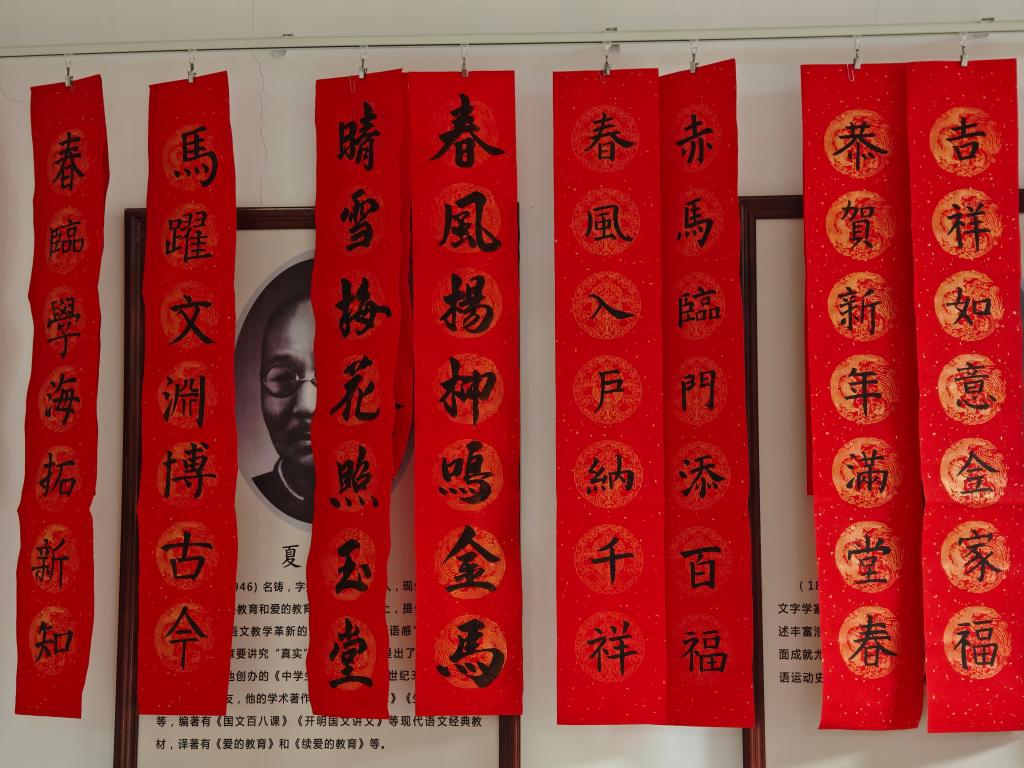 吉祥如意全家福
恭賀新年滿堂春
赤馬臨門添百福
春風入戶納千祥
春風楊柳鳴金馬
晴雪梅花照玉堂
馬躍文淵博古今
春臨學海拓新知
夏
946）名铸，字
，现
教育和爱的教育
上，提
语文教学革新的
语感”
要讲究“真实”
提出了
他创办的《中学生
世纪
友，他的学术著作
等，编著有《国文百八课》《开明国文讲义》等现代语文经典教
材，译著有《爱的教育》和《续爱的教育》等。
（18
文字学家
述丰富
面成就
语运动史